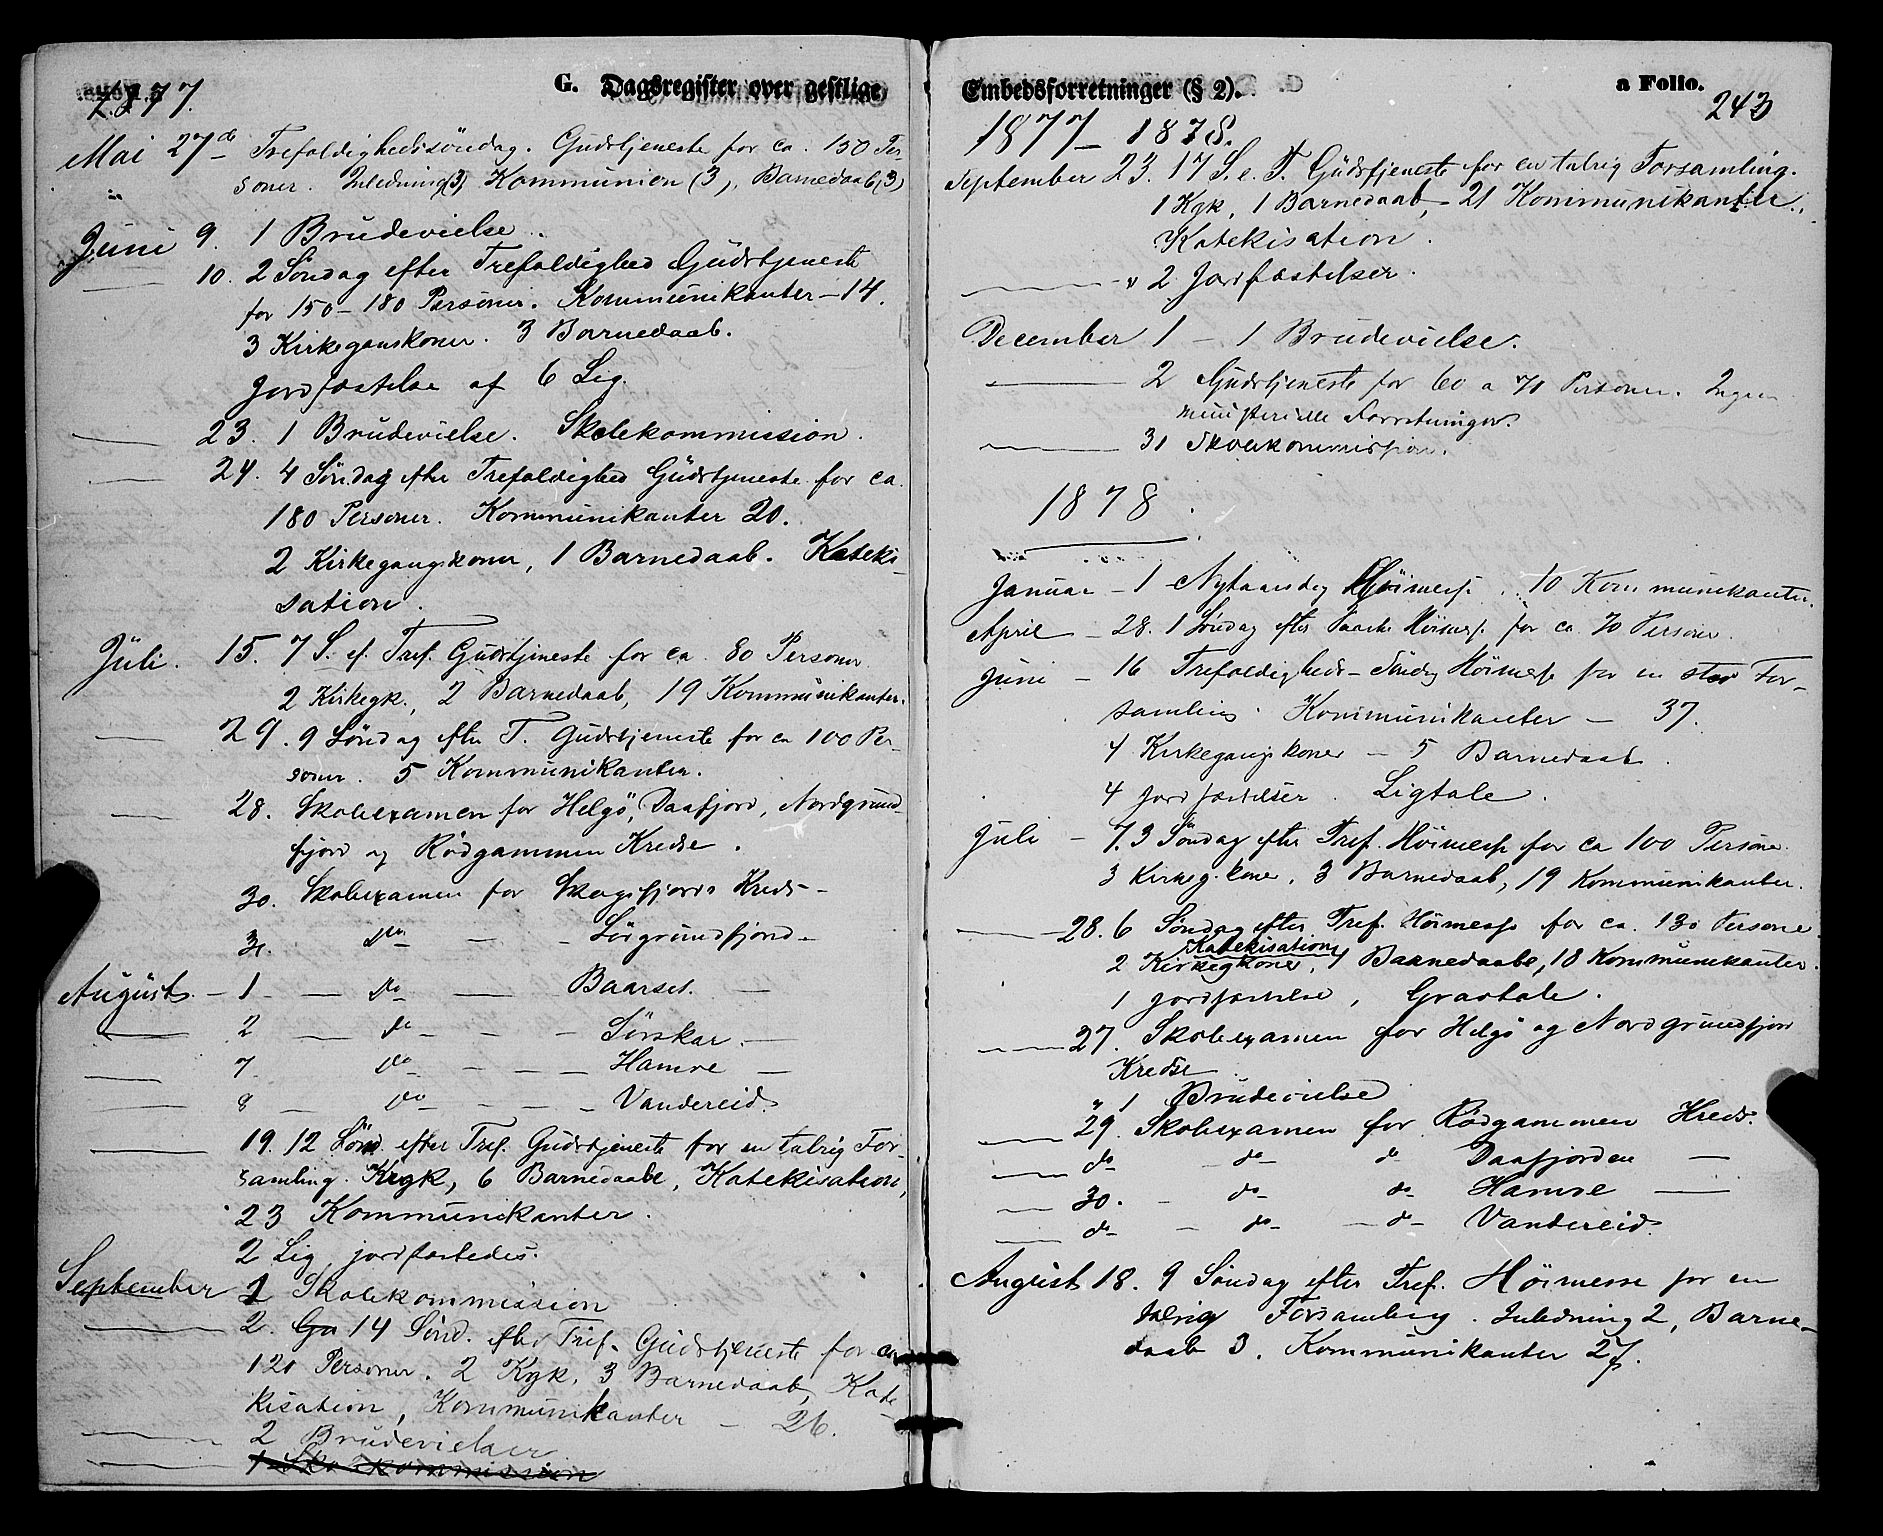 G. Dagsregister over gestlige
1877.
Mai 27de Trefoldighedssöndag. Gudstjeneste for ca. 150 Per-
soner. Inledning (3) Kommunion (3), Barnedaab (3)
Juni 9. 1 Brudevielse.
10. 2 Søndag efter Trefoldighed Gudstjeneste
for 150 - 180 Personer. Kommunikanter - 14.
3 Kirkegangskoner. 3 Barnedaab.
Jordfæstelse af 6 Lig.
23. 1 Brudevielse. Skolekommission.
24. 4 Søndag efter Trefoldighed Gudstjeneste for ca.
180 Personer. Kommunikanter 20.
2 Kirkegangskoner, 1 Barnedaab. Kateki-
sation.
Juli. 15. 7 S. ef. Tref. Gudstjeneste for ca. 80 Personer
2 Kirkegk., 2 Barnedaab, 19 Kommunikanter.
29. 9 Søndag efter T. Gudstjeneste for ca 100 Per-
soner. 5 Kommunikanter.
28. Skoleexamen for Helgö, Daafjord, Nordgrund-
fjord og Rödgammen Kredse.
30. Skoleexamen for Skogsfjords Kreds -
31. do - - Sörgrundfjord -
August. - 1 - do - Baarset. -
2 - do - - - Sörskar. -
7 - do - - - Hamre -
8 - do - - - Vandereid.
19. 12 Sönd. efter Tref. Gudstjeneste for en talrig For-
samling. Kigk, 6 Barnedaabe, Katekisation,
23 Kommunikanter.
2 Lig jordfæstedes.
September 1 Skolekommission
2. Gu 14 Sönd. efter Tref. Gudstjeneste for ca
120 Personer. 2 Kgk. 3 Barnedaab, Kate-
kisation, Kommunikanter - 26.
2 Brudevielser
1 Skolekommission
Embedsforretninger (§ 2). a Folio.
243
1877 - 1878.
September 23. 17 S. e. T. Gudstjeneste for en talrig Forsamling.
1 Kgk, 1 Barnedaab, - 21 Kommunikanter.
Katekisation.
" 2 Jordfæstelser.
December 1 - 1 Brudevielse.
2 Gudstjeneste for 60 a 70 Personer. Ingen
ministerielle Forretninger.
31 Skolekommission.
1878.
Januar - 1 Nytaarsdag Höimesse. 10 Kommunikanter.
April - 28. 1 Søndag efter Paaske Höimesse for ca. 70 Personer.
Juni - 16 Trefoldigheds-Söndag Höimesse for en stor For-
samling. Kommunikanter - 37.
4 Kirkegangskoner - 5 Barnedaab.
4 Jordfæstelser. Ligtale.
Juli - 7. 3 Søndag efter Tref. Höimesse for ca 100 Personer.
3 Kirkeg.koner, 3 Barnedaab, 19 Kommunikanter.
28. 6 Søndag efter Tref. Höimesse for ca. 130 Personer
Katekisation,
2 Kirkegkoner, 1 Barnedaab, 18 Kommunikanter.
1 Jordfæstelse, Gravtale.
27. Skoleexamen for Helgö og Nordgrundfjord
Kredse
" 1 Brudevielse
29. Skoleexamen for Rödgammen Kreds.
do - do - do Daafjorden -
30. - do - do - Hamre -
do - do - do - Vandereid.
August 18. 9 Søndag efter Tref. Höimesse for en
talrig Forsamling. Inledning 2, Barne-
daab 3. Kommunikanter 27.